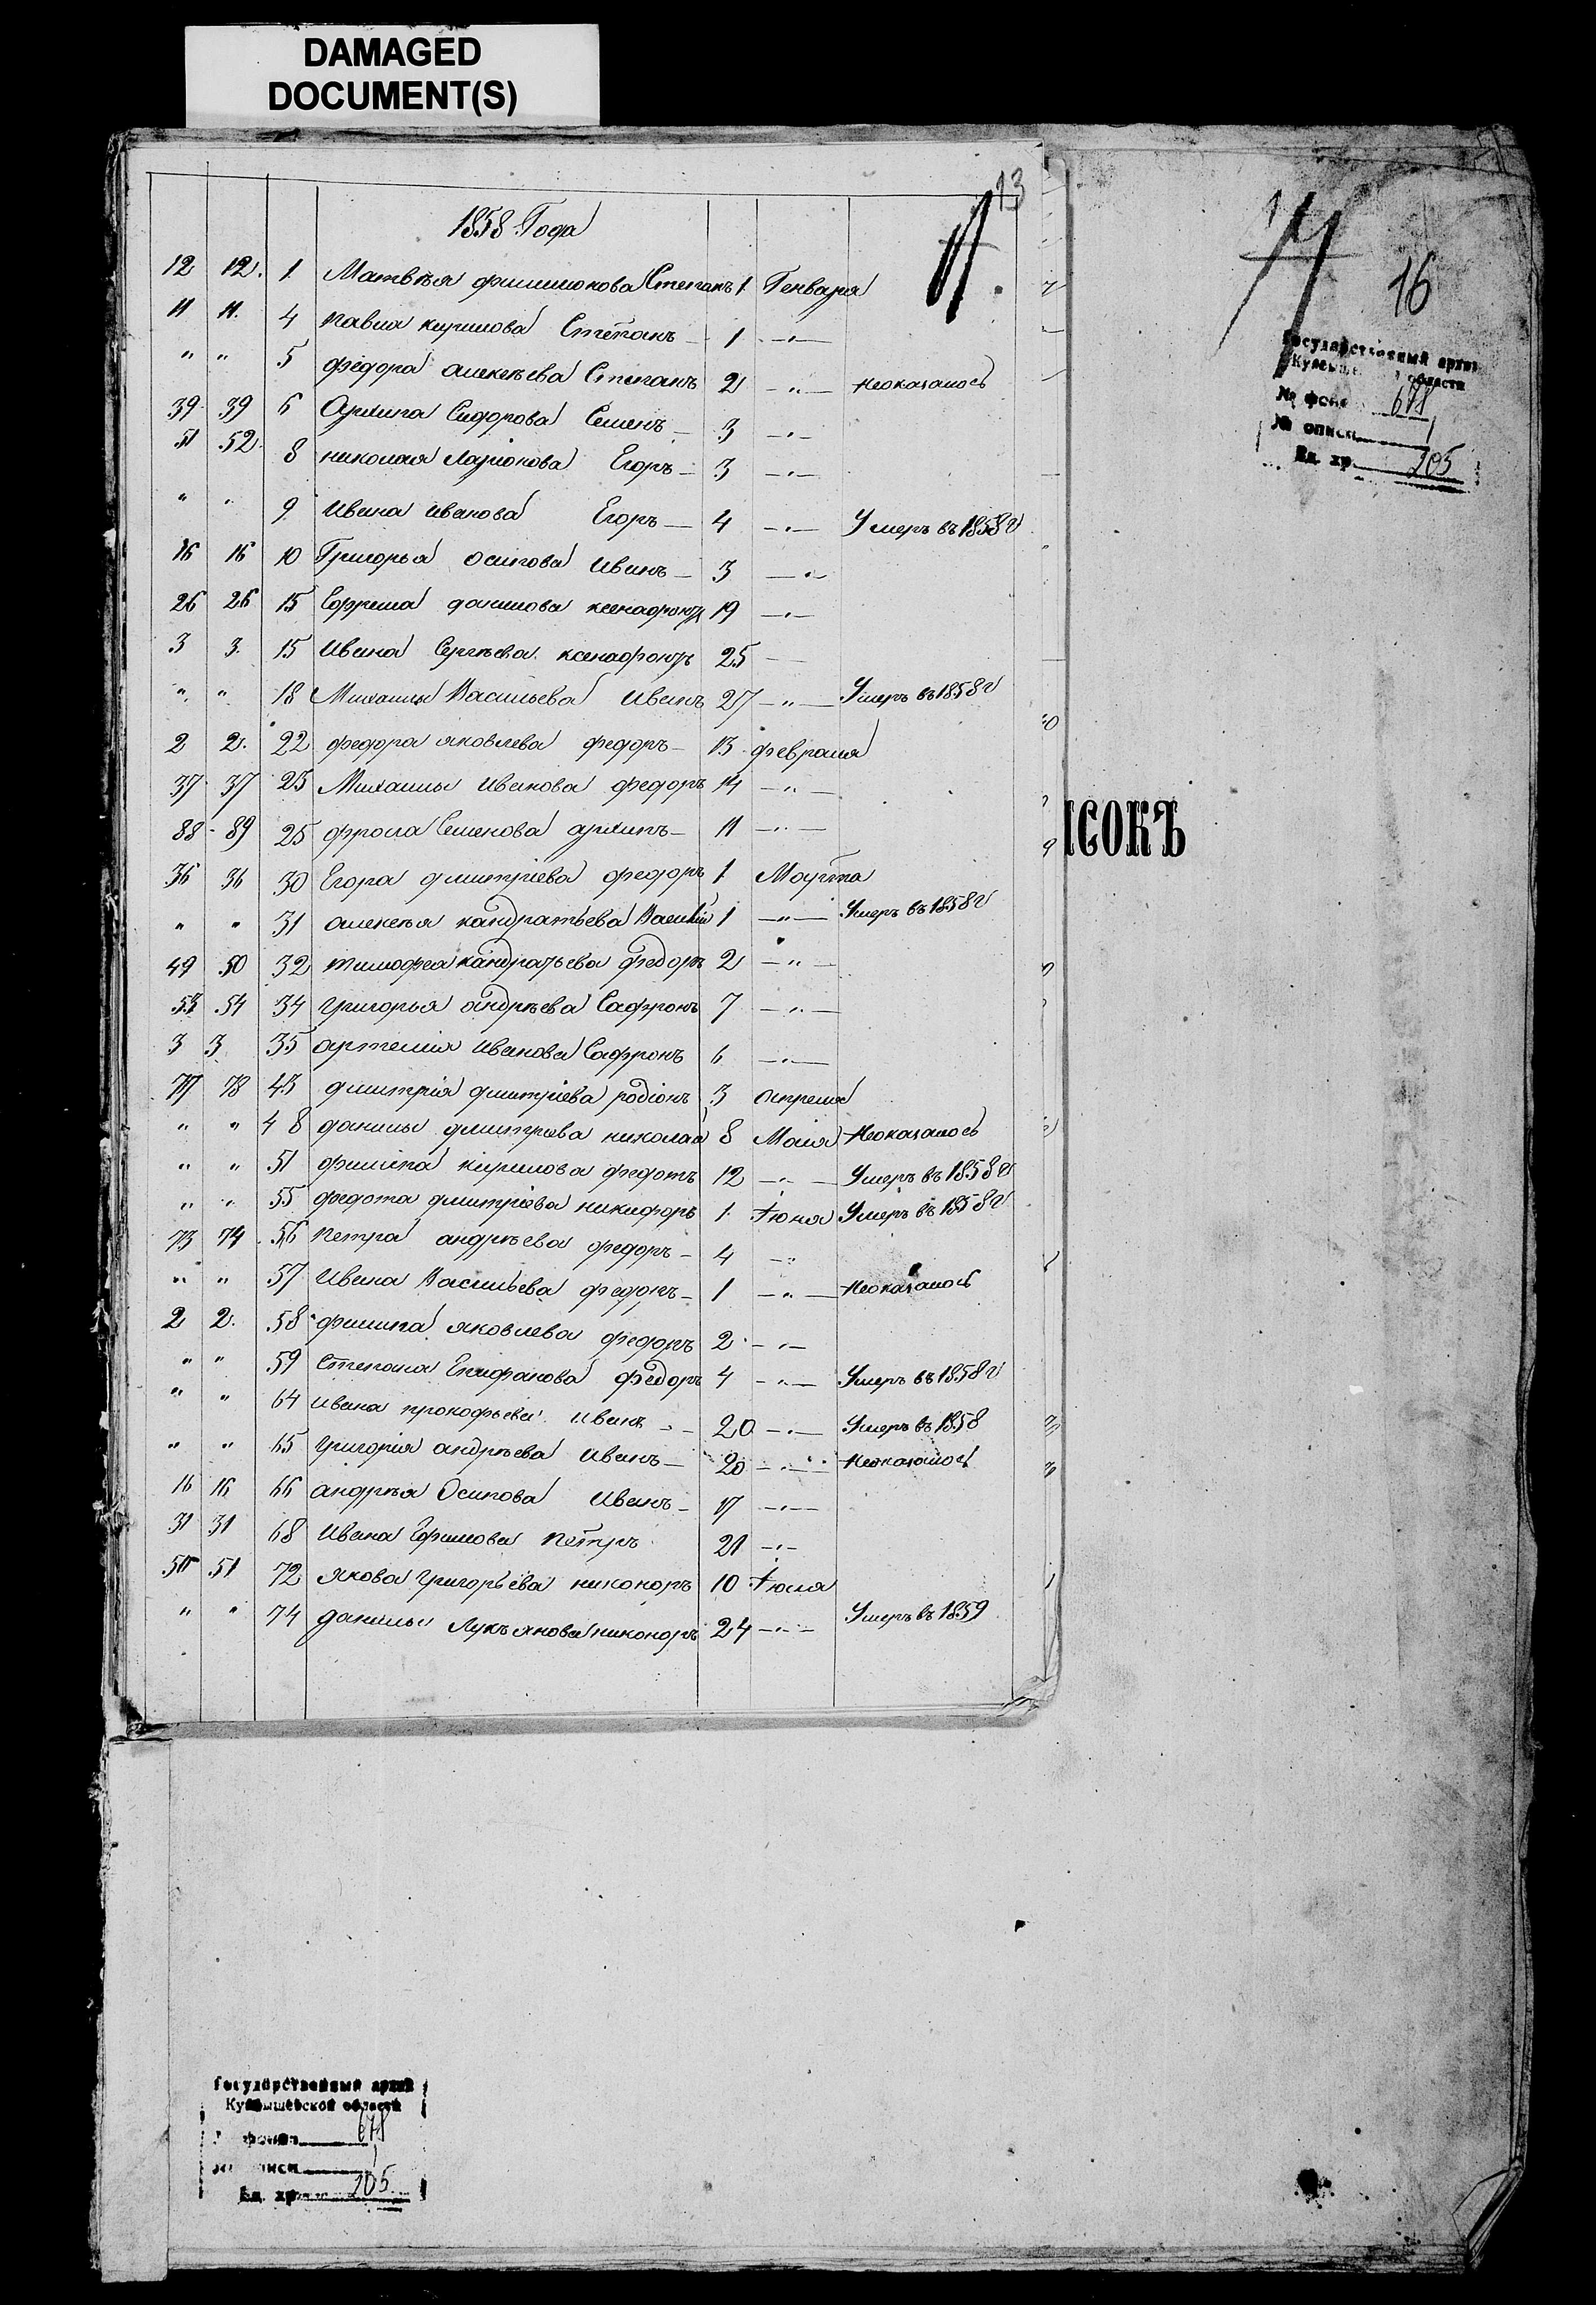 DAMAGED
DOCUMENT(S)
13
1858 Года
12 12. 1 Матвѣя Филимонова Степанъ 1 Генваря
11 11. 4 Павла Кирилова Степанъ 1 —"—
" " 5 Федора Алексѣева Степанъ 2 —"— неоказалось
39 39 6 Архипа Сидорова Семенъ 3 —"—
51 52 8 Николая Ларионова Егоръ 3 —"—
" " 9 Ивана Иванова Егоръ 4 —"— Умеръ въ 1858 г
16 16 10 Григорья Осипова Иванъ 3 —"—
26 26 15 Ефрема Данилова Ксенафонтъ 19 —"—
3 3. 15 Ивана Сергѣева Ксенафонтъ 25 —
" " 18 Михаилы Васильева Иванъ 27 —"— Умеръ въ 1858 г
2 2. 22 Федора Яковлева Федоръ 13 Февраля
37 37 23 Михаилы Иванова Федоръ 14 —"—
88 89 25 Фрола Семенова Архипъ 11 —"—
36 36 30 Егора Дмитріева Федоръ 1 Марта
" " 31 Алексѣя Кандратьева Василій 1 —"— Умеръ въ 1858 г
49 50 32 Тимофея Кандратьева Федоръ 2 —"—
53 54 34 Григорья Андрѣева Сафронъ 7 —"—
3 3 35 Артемия Иванова Сафронъ 6 —"—
77 78 43 Дмитрія Дмитріева Родіонъ 3 Апреля
" " 48 Данилы Дмитриева Николай 8 Маия Неоказалось
" " 51 Филипа Кирилова Федотъ 12 —"— Умеръ въ 1858 г
" " 55 Федота Дмитріева Никифоръ 1 Іюня Умеръ въ 1858 г
73 74 56 Петра Андрѣева Федоръ 4 —"—
" " 57 Ивана Васильева Федоръ 1 —"— Неоказалось
2 2. 58 Филипа Яковлева Федоръ 2 —"—
" " 59 Степана Епифанова Федоръ 4 —"— Умеръ въ 1858 г
" " 64 Ивана Прокофьева Иванъ 20 —"— Умеръ въ 1858
" " 65 Григорія Андрѣева Иванъ 20 —"— Неоказалось
16 16 66 Андрѣя Осипова Иванъ 17 —"—
31 31 68 Ивана Ефимова Петръ 21 —"—
50 51 72 Якова Григорьева Никоноръ 10 Іюля
" " 74 Данилы Лукъянова Никоноръ 24 —"— Умеръ въ 1859
16
Государственный архив
Куйбыш. области
№ фонд 678
№ описи 1
Ед. хр. 205
ИСОКЪ
Государственный архив
Куйбышевской области
фонда 678
описи 1
Ед. хр. 205